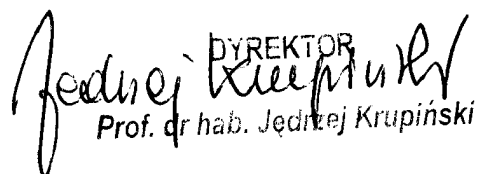 DYREKTOR
Jędrzej Krupiński
Prof. dr hab. Jędrzej Krupiński